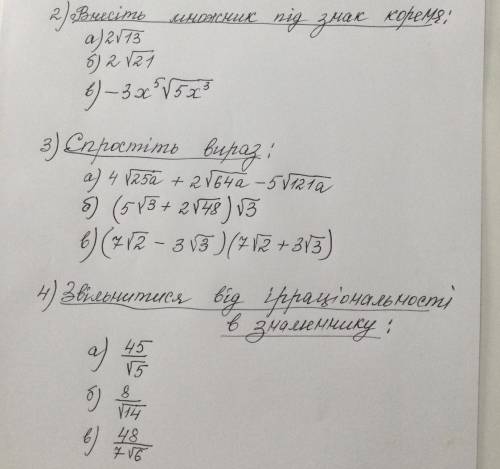 2) Внесіть множник під знак кореня:
а) 2√13
б) 2√21
в) -3x⁵√5x³
3) Спростіть вираз:
а) 4√25a + 2√64a - 5√121a
б) (5√3 + 2√48)√3
в) (7√2 - 3√3)(7√2 + 3√3)
4) Звільнитися від ірраціональності
в знаменнику:
а) 45/√5
б) 8/√14
в) 48/7√6